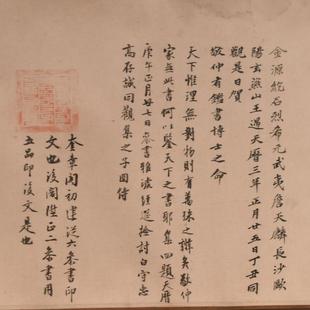 金源紇石烈希元武夷詹天麟長沙歐
陽玄燕山王遇天曆三年正月廿五日丁丑同
觀是日賀
敬仲有鑑書博士之命
天下惟理無對物則有萬殊之撰矣敬仲
家無此書何以鑒天下之書耶集四題天曆
庚午正月廿七日參書雅琥經筵檢討白守忠
高存誠同觀集之子同侍
奎章閣初建從六參書印
文也後閣陞正二參書用
五品印後文是也